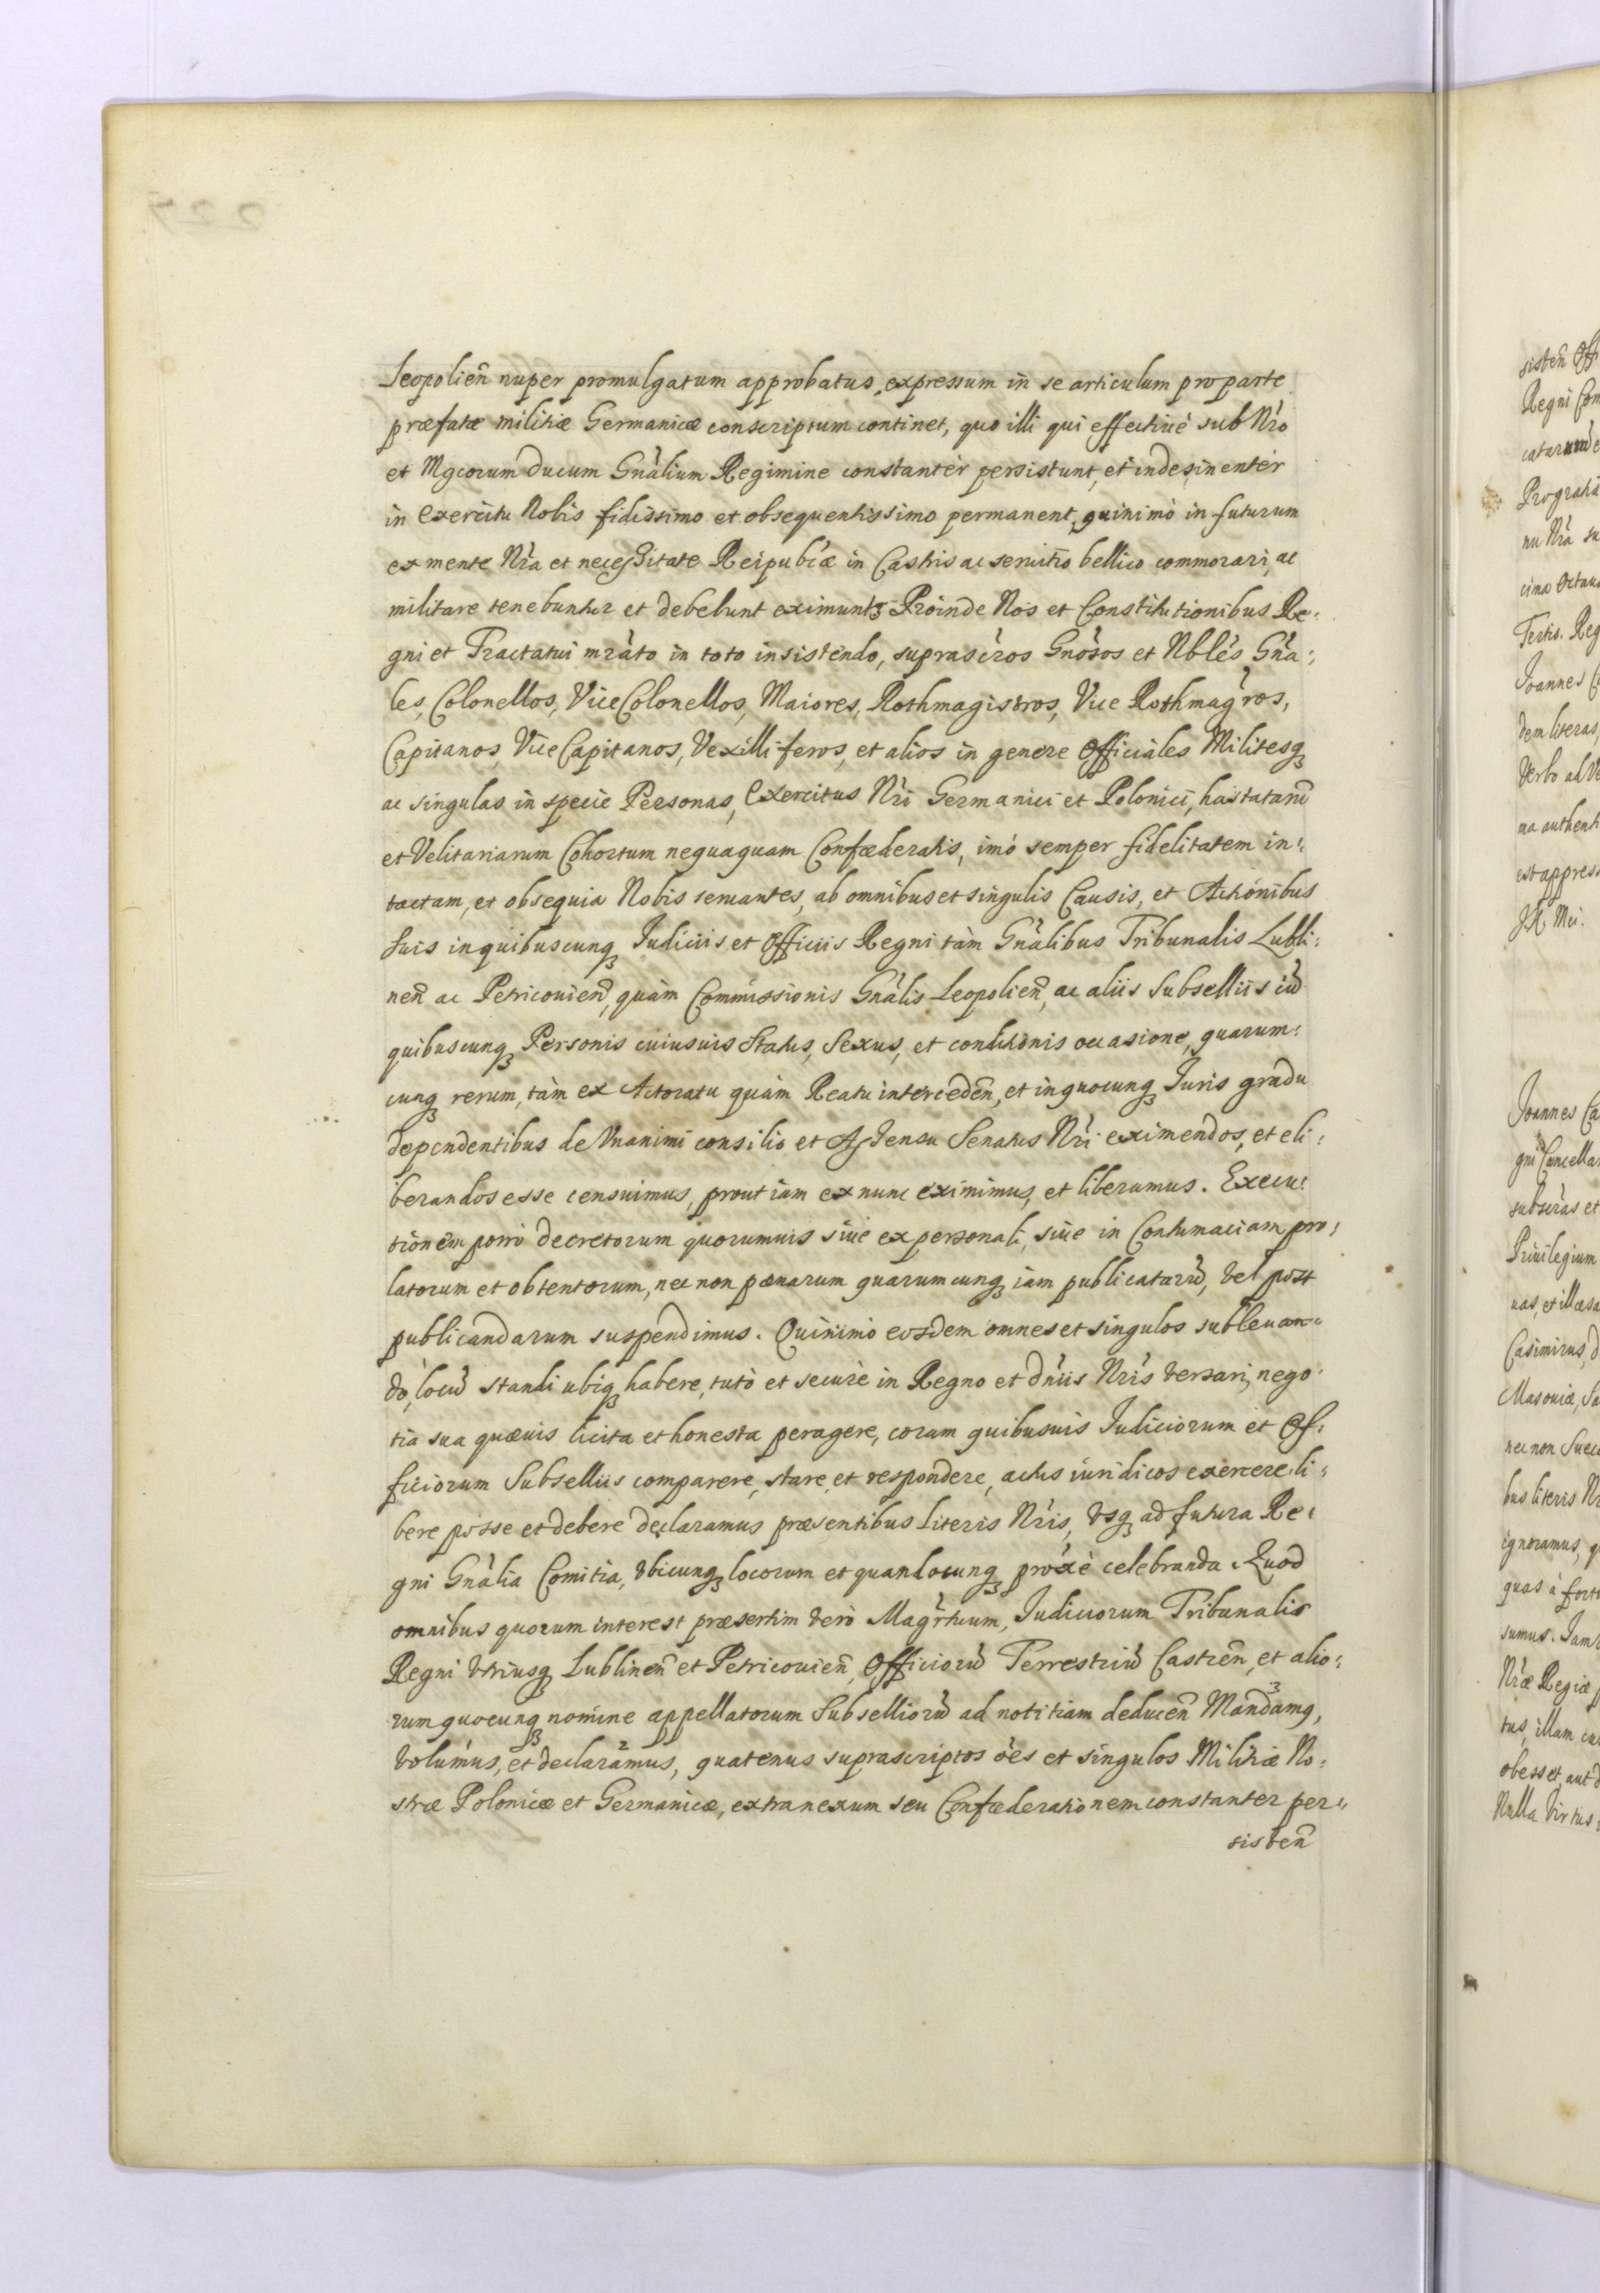 Leopolien̄ nuper promulgatum approbatus, expressum in se articulum pro parte
præfatæ militiæ Germanicæ conscriptum continet, quo illi qui effectiuè sub Nr̃o
et Mgcorum Ducum Gnãlium Regimine constantèr persistunt, et indesinentèr
in exercitu Nobis fidissimo et obsequentissimo permanent, quinimò in futurum
ex mente Nr̃a et necessitate Reipubĉæ in Castris ac seruitio bellico commorari, ac
militare tenebuntur et debebunt eximuntꝫ Proinde Nos et Constitutionibus Re:
gni et Tractatui mr̃ato in toto insistendo, suprascr̃os Gnõsos et Nblẽs Gnã:
les, Colonellos, ViceColonellos, Maiores, Rothmagistros, Vice Rothmagr̃os,
Capitanos, ViceCapitanos, Vexilliferos, et alios in genere Officiales Militesqꝫ
ac singulas in specie Personas, Exercitus Nr̃i Germanici et Polonici, hastatarū
et Velitariarum Cohortum nequaquam Confæderatis, imò semper fidelitatem in:
tactam, et obsequia Nobis seruantes, ab omnibus et singulis Causis, et Actionibus
suis in quibuscunqꝫ Iudiciis et Officiis Regni tàm Gnãlibus Tribunalis Lubli:
nen̄ ac Petricouien̄, quàm Commissionis Gnãlis Leopolien̄, ac aliis Subselliis cū
quibuscunqꝫ Personis cuiusuis Status, Sexus, et conditionis occasione, quarum:
cunqꝫ rerum, tàm ex Actoratu quàm Reatu interceden̄, et in quocunqꝫ Iuris gradu
dependentibus de Vnanimi consilio et Assensu Senatus Nr̃i eximendos, et eli:
berandos esse censuimus, prout iam ex nunc eximimus, et liberamus. Execu:
tionem porrò decretorum quorumuis siue ex personali, siue in Contumaciam pro:
latorum et obtentorum, nec non pœnarum quarumcunqꝫ iam publicatarū, vel post
publicandarum suspendimus. Quinimò eosdem omnes et singulos subleuan:
do, locū standi ubiqꝫ habere, tutò et securè in Regno et Dn̄iis Nr̃is versari, nego:
tia sua quæuis licita et honesta peragere, coram quibusuis Iudiciorum et Of:
ficiorum Subselliis comparere, stare, et respondere, actus iuridicos exercere, li:
bere posse et debere declaramus præsentibus Literis Nr̃is, vsqꝫ ad futura Re:
gni Gnãlia Comitia, vbicunqꝫ locorum et quandocunqꝫ prox̃è celebranda. Quod
omnibus quorum interest præsertim verò Magr̃tuum, Iudiciorum Tribunalis
Regni vtriusqꝫ Lublinen̄ et Petricouien̄, Officiorū Terrestriū Castren̄, et alio:
rum quocunqꝫ nomine appellatorum Subselliorū ad notitiam deducen̄ Mandamꝰ,
volumus, et declaramus, quatenus suprascriptos õẽs et singulos Militiæ No:
stræ Polonicæ et Germanicæ, extra nexum seu Confæderationem constanter per:
sisten̄
sisten̄ Off
Regni Com
nu Nr̃a su
cima Octau
Tertio. Reg
Joannes C
dem literas,
Verbo ad Ve
est appress
Joannes Ca
gni Cancella
subscr̃as et
Priuilegium
Casimirus, d
Masouiæ, Sa
nec non Suec
bus literis Nr
ignoramus, q
sumus. Jam
Nr̃æ Regiæ p
tus, illam cu
obesset, aut d
Nulla virtus